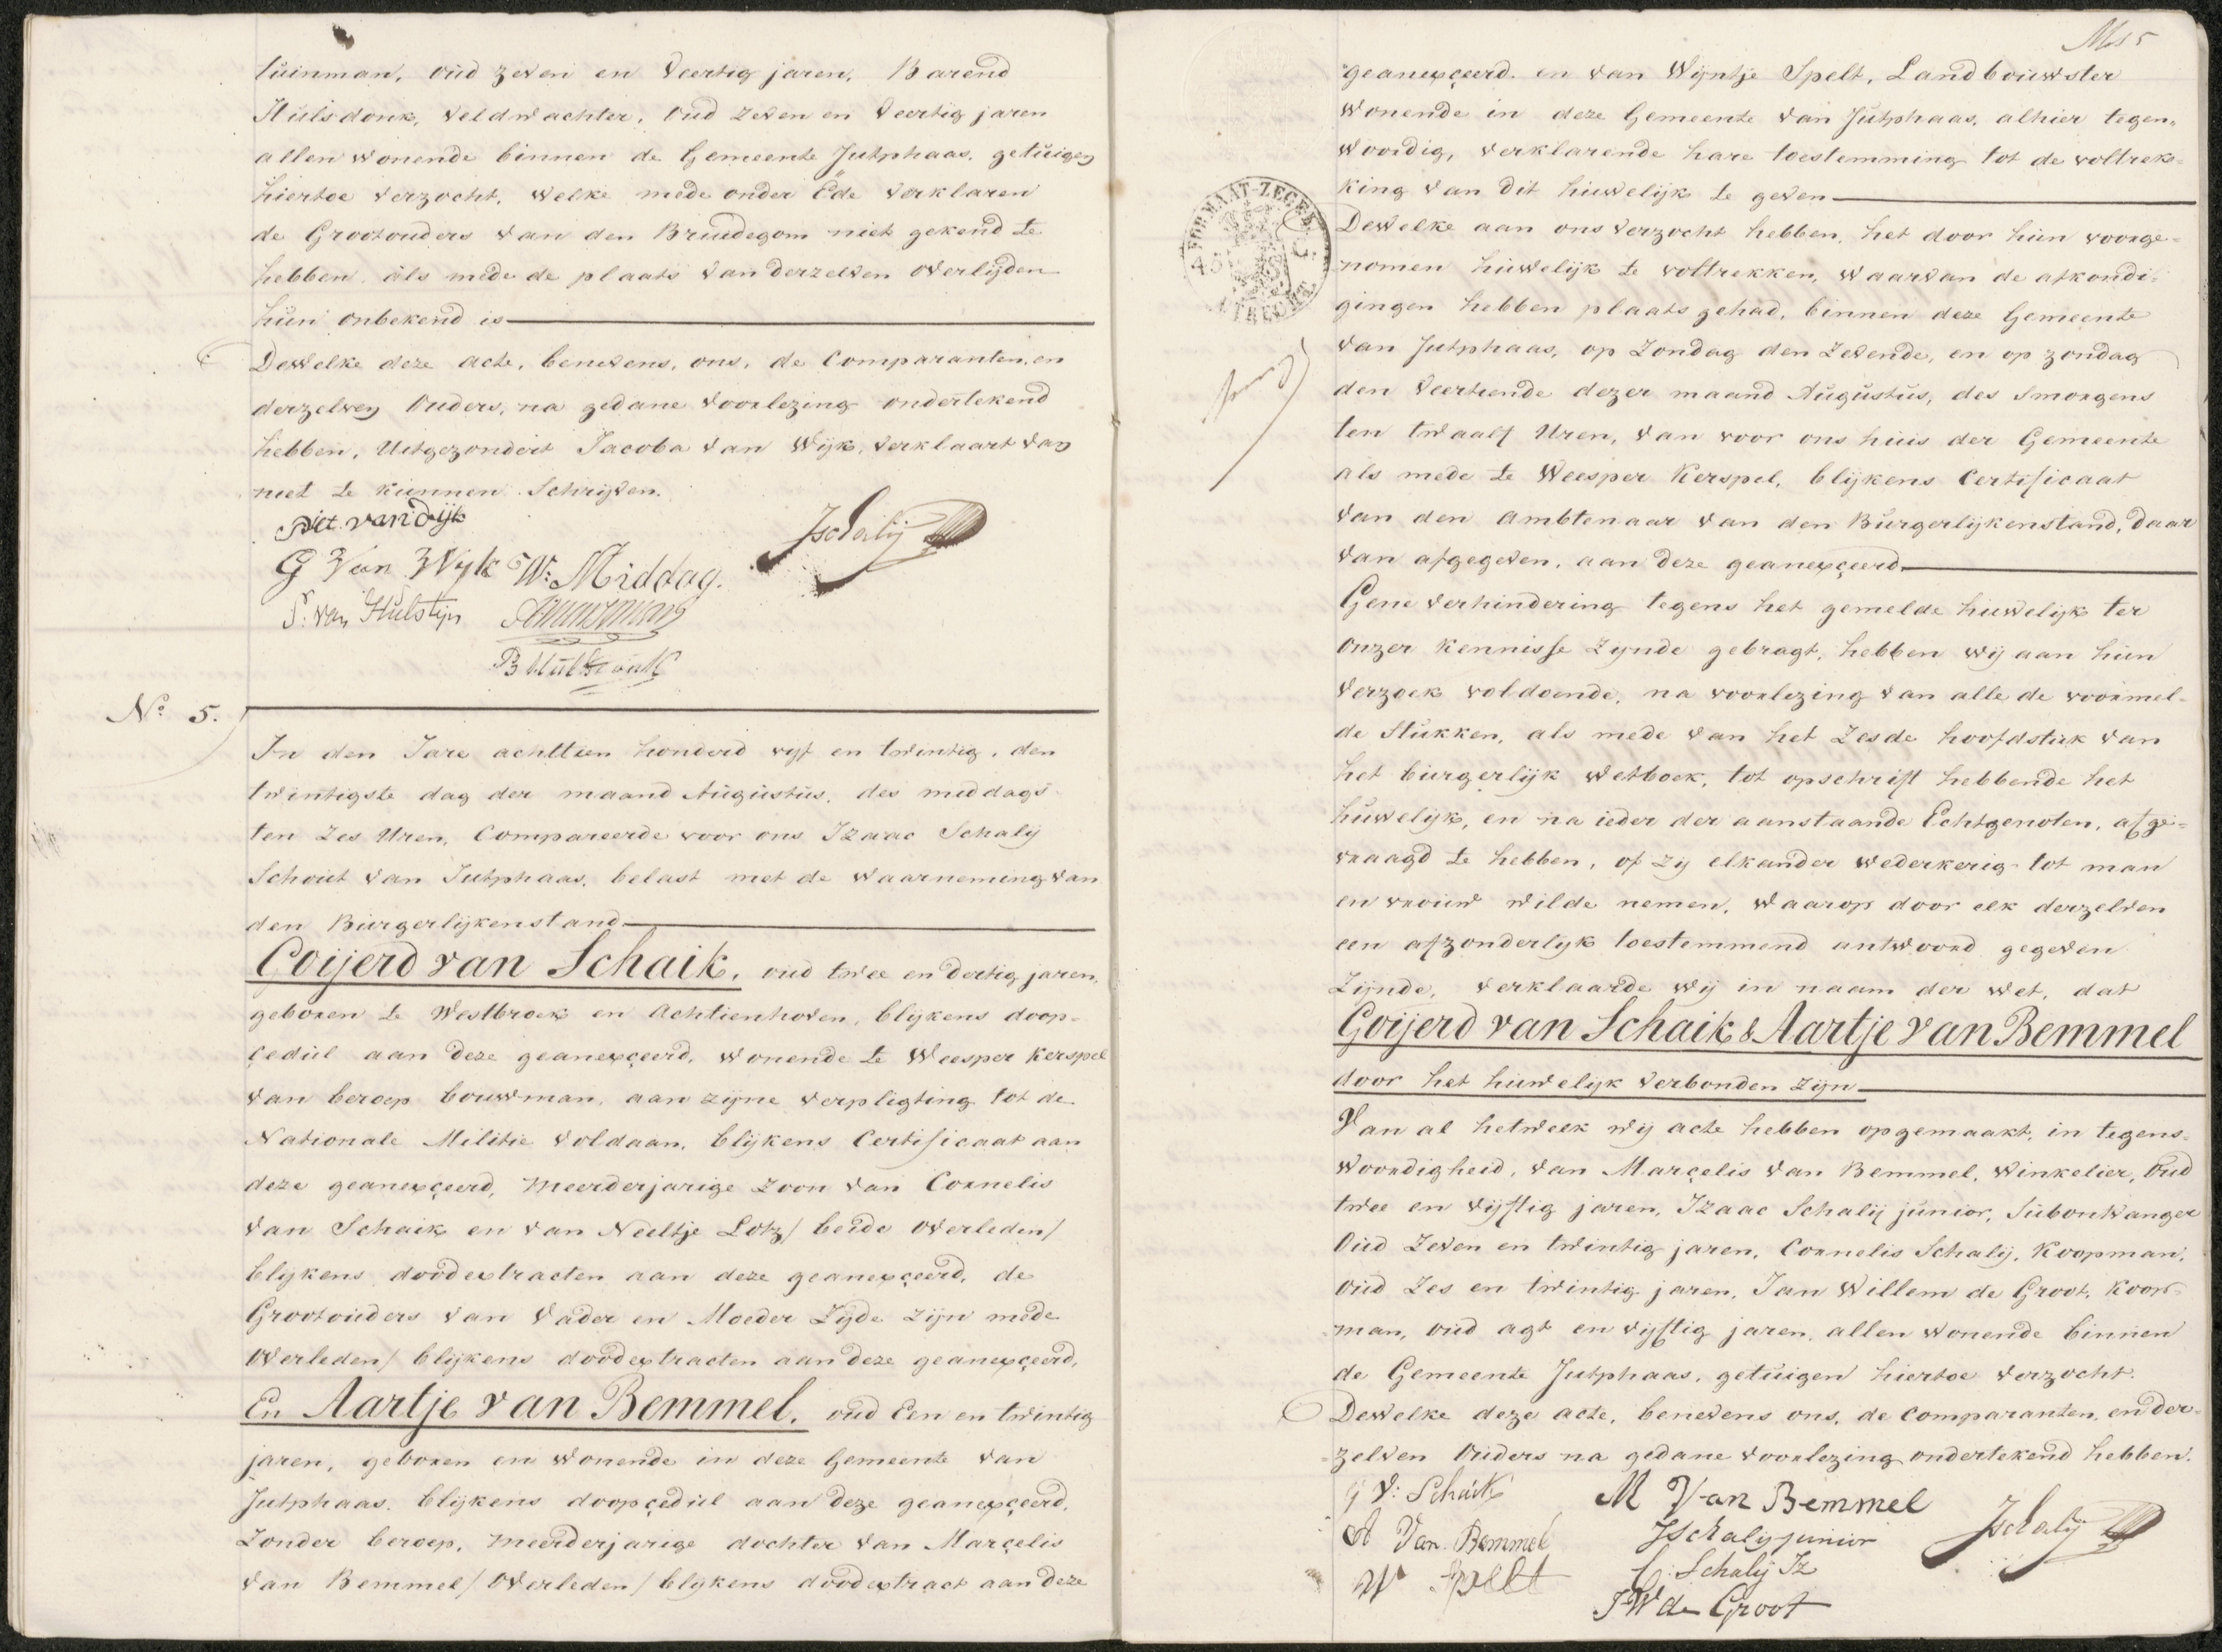 tuinman, oud zeven en veertig jaren, Barend
Hulsdonk, veldwachter, oud zeven en veertig jaren
allen wonende binnen de Gemeente Jutphaas, getuigen
hiertoe verzocht, welke mede onder Ede verklaren
de Grootouders van den Bruidegom niet gekend te
hebben, als mede de plaats van derzelven overlijden
hun onbekend is
Dewelke deze acte, benevens, ons, de Comparanten, en
derzelven Ouders, na gedane voorlezing ondertekend
hebben, Uitgezondert Jacoba van Wijk, verklaart van
niet te kunnen Schrijven.
Piet van dijk
G Van Wyk W: Middag.
JSchalij
P. van Hulstijn
B Hulsdonk
No. 5.
In den Jare achttien honderd vyf en twintig, den
twintigste dag der maand Augustus, des middags
ten Zes Uren, Compareerde voor ons Izaac Schalij
Schout van Jutphaas, belast met de waarneming van
den Burgerlijkenstand
Goijerd van Schaik, oud twee en dertig jaren,
geboren te Westbroek en Achtienhoven, blijkens doop-
çedul aan deze geanexçeerd, wonende te Weesper Kerspel
van beroep bouwman, aan zijne verpligting tot de
Nationale Militie voldaan, blijkens Certificaat aan
deze geanexçeerd, meerderjarige Zoon van Cornelis
van Schaik en van Neeltje Lotz/ beide overleden/
blijkens doodextracten aan deze geanexçeerd, de
Grootouders van Vader en Moeder Zijde zijn mede
Overleden/ blijkens doodextracten aan deze geanexçeerd,
En Aartje van Bemmel, oud Een en twintig
jaren, geboren en wonende in deze Gemeente van
Jutphaas, blijkens doopçedul aan deze geanexçeerd,
Zonder beroep, meerderjarige dochter van Marçelis
van Bemmel/ Overleden/ blijkens doodextract aan deze
geanexçeerd. en van Wijntje Spelt, Landbouwster
wonende in deze Gemeente van Jutphaas, alhier tegen-
woordig, verklarende hare toestemming tot de voltrek-
king van dit huwelijk te geven
FORMAAT-ZEGEL
UTRECHT
Dewelke aan ons verzocht hebben, het door hun voorge-
nomen huwelijk te voltrekken, waarvan de afkondi-
gingen hebben plaats gehad, binnen deze Gemeente
van Jutphaas, op Zondag den Zevende, en op zondag
den veertiende dezer maand Augustus, des Smorgens
ten twaalf Uren, van voor ons huis der Gemeente
als mede te Weesper Kerspel, blijkens Certificaat
van den Ambtenaar van den Burgerlijkenstand, daar
van afgegeven, aan deze geanexçeerd
Gene verhindering tegens het gemelde huwelijk ter
Onzer kennisse Zijnde gebragt, hebben wij aan hun
verzoek voldoende, na voorlezing van alle de voormel-
de Stukken, als mede van het Zesde hoofdstuk van
het burgerlijk wetboek, tot opschrift hebbende het
huwelijk, en na ieder der aanstaande Echtgenoten, afge-
vraagd te hebben, of zij elkander wederkerig tot man
en vrouw wilde nemen, waarop door elk derzelven
een afzonderlijk toestemmend antwoord gegeven
Zijnde, verklaarde wij in naam der wet, dat
Goijerd van Schaik & Aartje van Bemmel
door het huwelijk verbonden zijn
Van al hetwelk wij acte hebben opgemaakt, in tegens-
woordigheid, van Marçelis van Bemmel, Winkelier, Oud
twee en vijftig jaren, Izaac Schalij junior, Subontvanger
Oud Zeven en twintig jaren, Cornelis Schalij, Koopman,
Oud Zes en twintig jaren, Jan Willem de Groot, Koop-
man, oud agt en vijftig jaren, allen wonende binnen
de Gemeente Jutphaas, getuigen hiertoe verzocht.
Dewelke deze acte, benevens ons, de Comparanten, en der-
zelven Ouders na gedane voorlezing ondertekend hebben.
G V: Schaik
M Van Bemmel
A Van Bemmel
JSchalij junior
JSchalij
W Spelt
C: Schalij Iz
J W de Groot